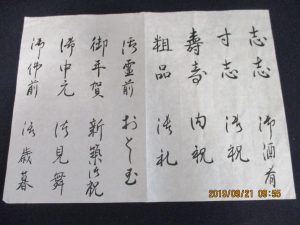 志志 御酒肴
寸志 御祝
壽寿 内祝
粗品 御礼
御霊前 おとし玉
御年賀 新築御祝
御中元 御見舞
御佛前 御歳暮
2019/09/21 09:55